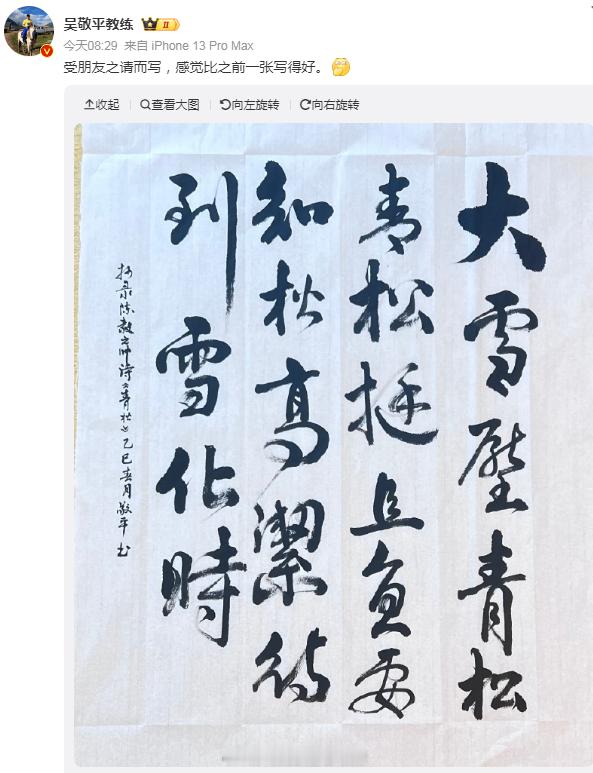 吴敬平教练 II
今天08:29 来自 iPhone 13 Pro Max
受朋友之请而写，感觉比之前一张写得好。
收起 查看大图 向左旋转 向右旋转
大雪壓青松
青松挺且直要
知松高潔待
到雪化時
抄录陈毅元帅诗《青松》乙巳春月敬平书